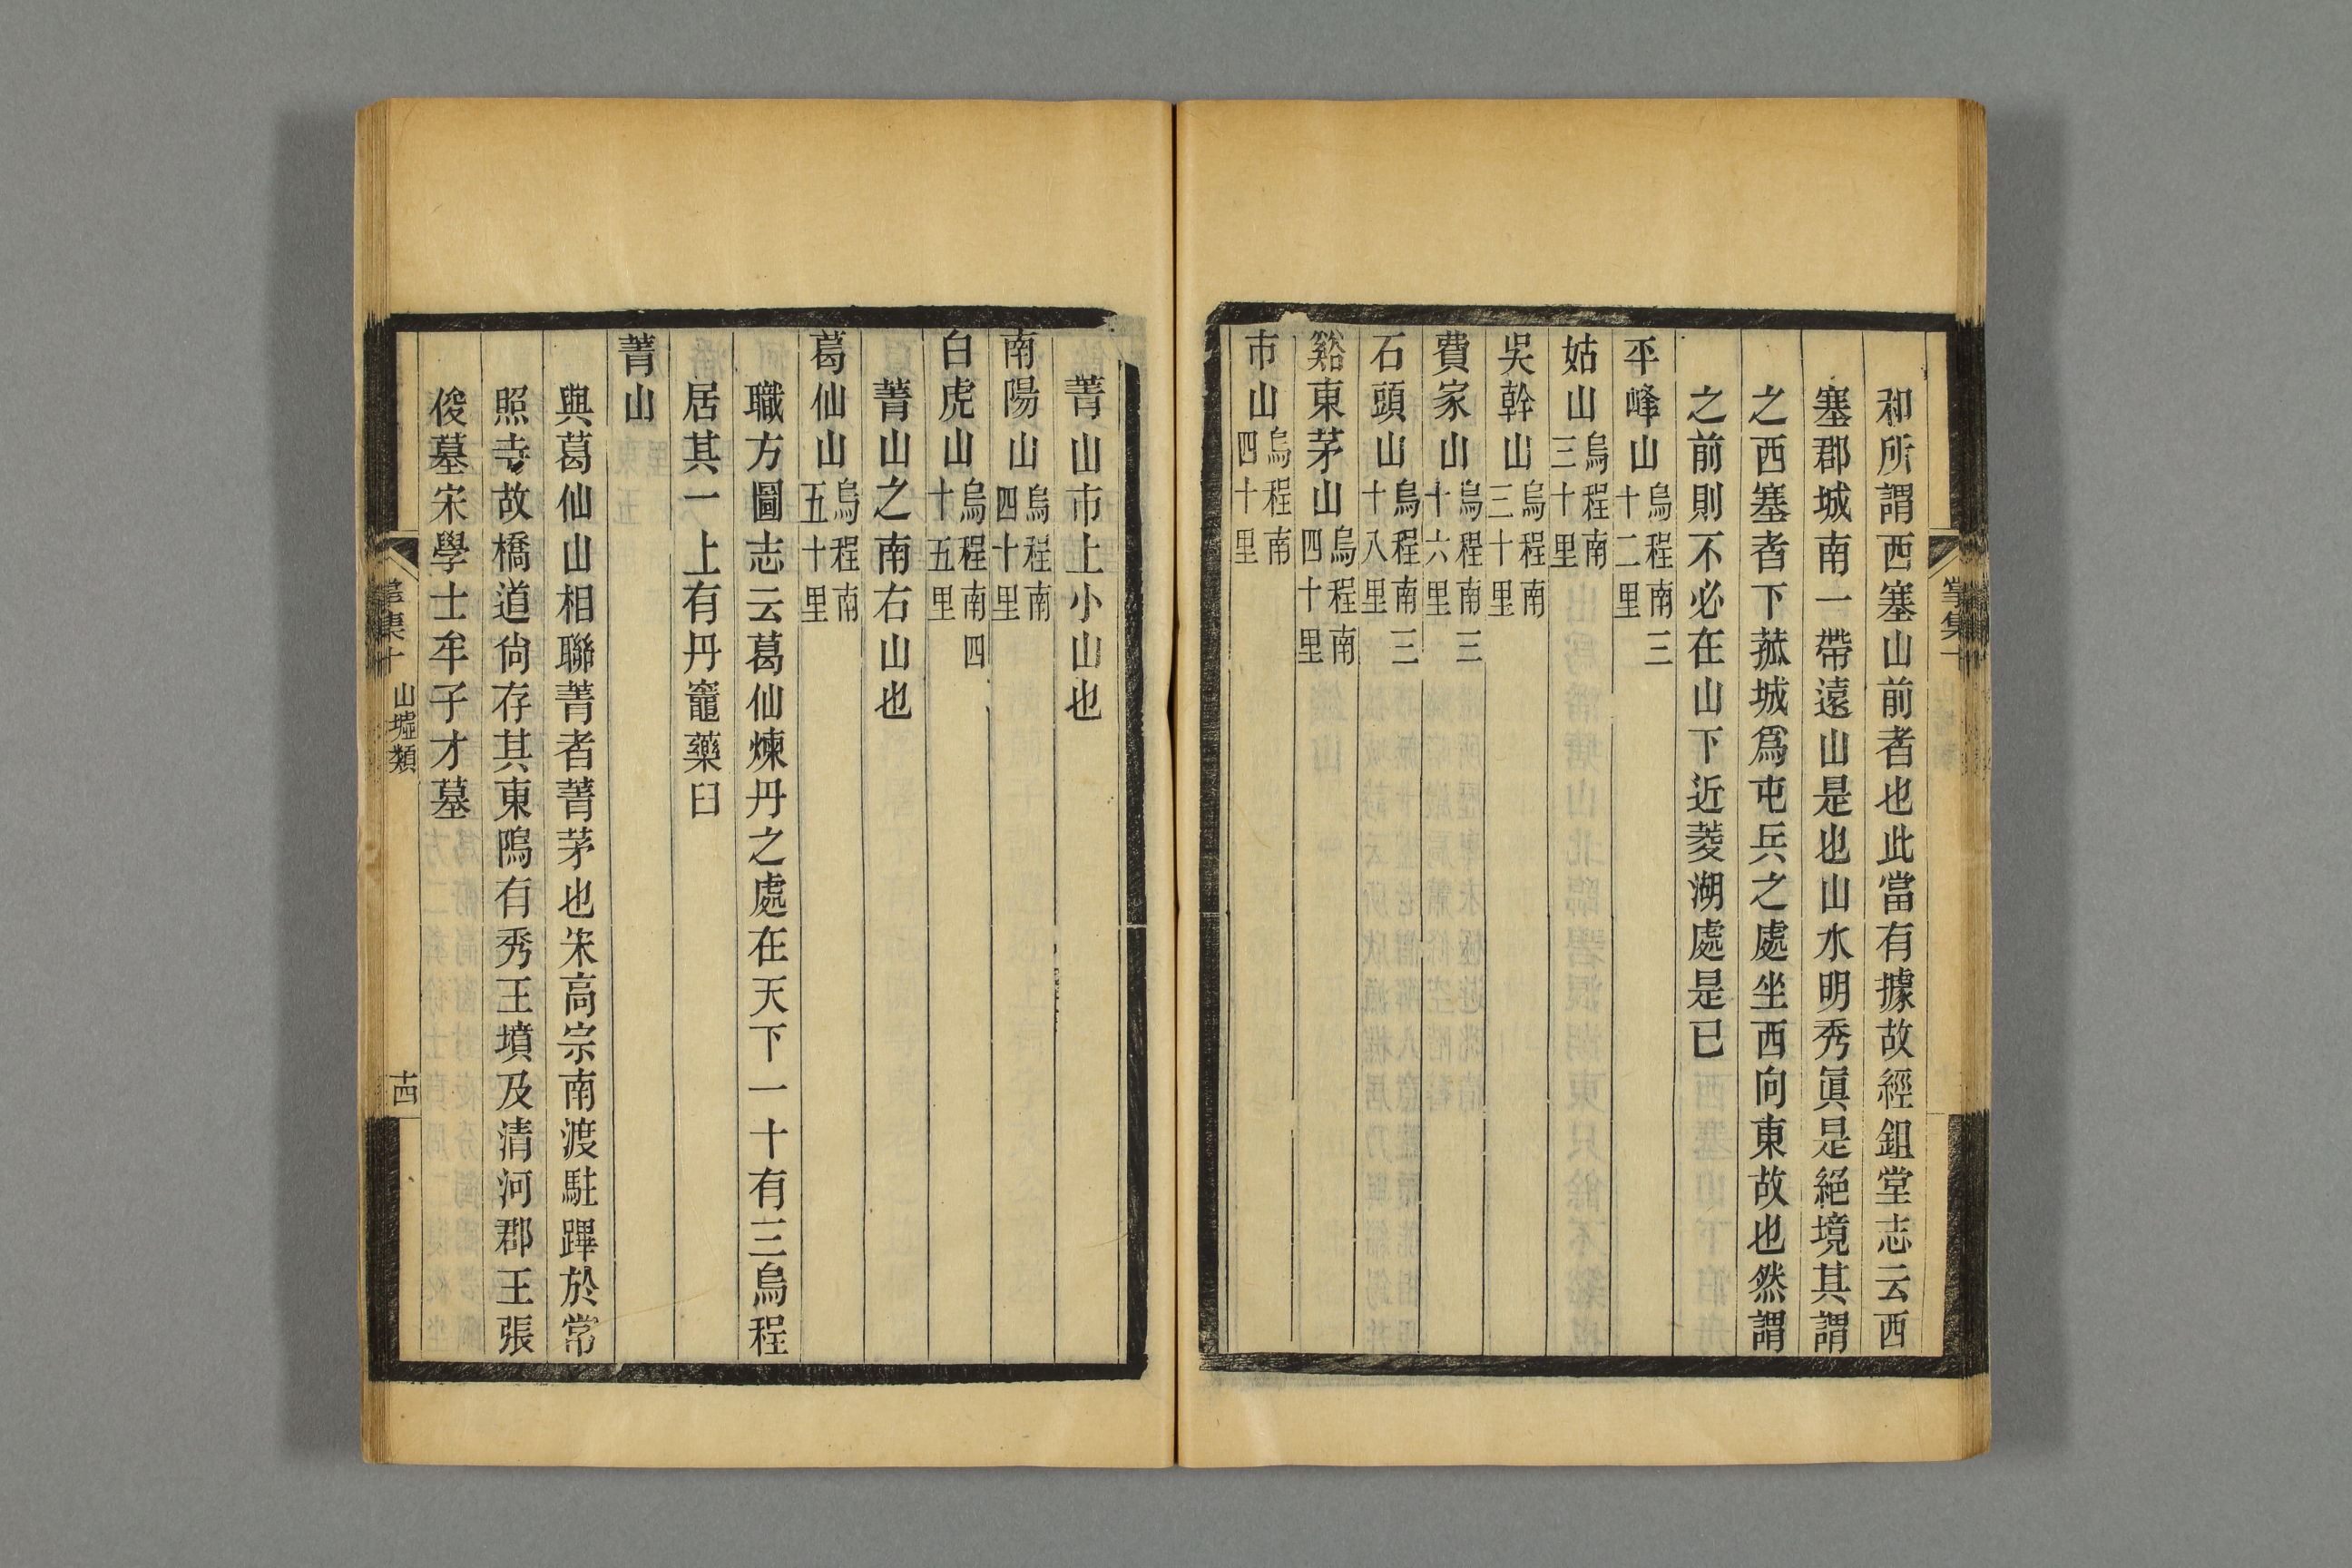 和所謂西塞山前者也此當有據故經鉏堂志云西
塞郡城南一帶遠山是也山水明秀眞是絕境其謂
之西塞者下菰城爲屯兵之處坐西向東故也然謂
之前則不必在山下近菱湖處是已
平峰山烏程南三十二里
姑山烏程南三十里
吳幹山烏程南三十里
費家山烏程南三十六里
石頭山烏程南三十八里
谿東茅山烏程南四十里
市山烏程南四十里
菁山市上小山也
南陽山烏程南四十里
白虎山烏程南四十五里
菁山之南右山也
葛仙山烏程南五十里
職方圖志云葛仙煉丹之處在天下一十有三烏程
居其一上有丹竈藥臼
菁山
與葛仙山相聯菁者菁茅也宋高宗南渡駐蹕於常
照寺故橋道尙存其東隖有秀王墳及清河郡王張
俊墓宋學士牟子才墓
掌集十 山墟類 十四